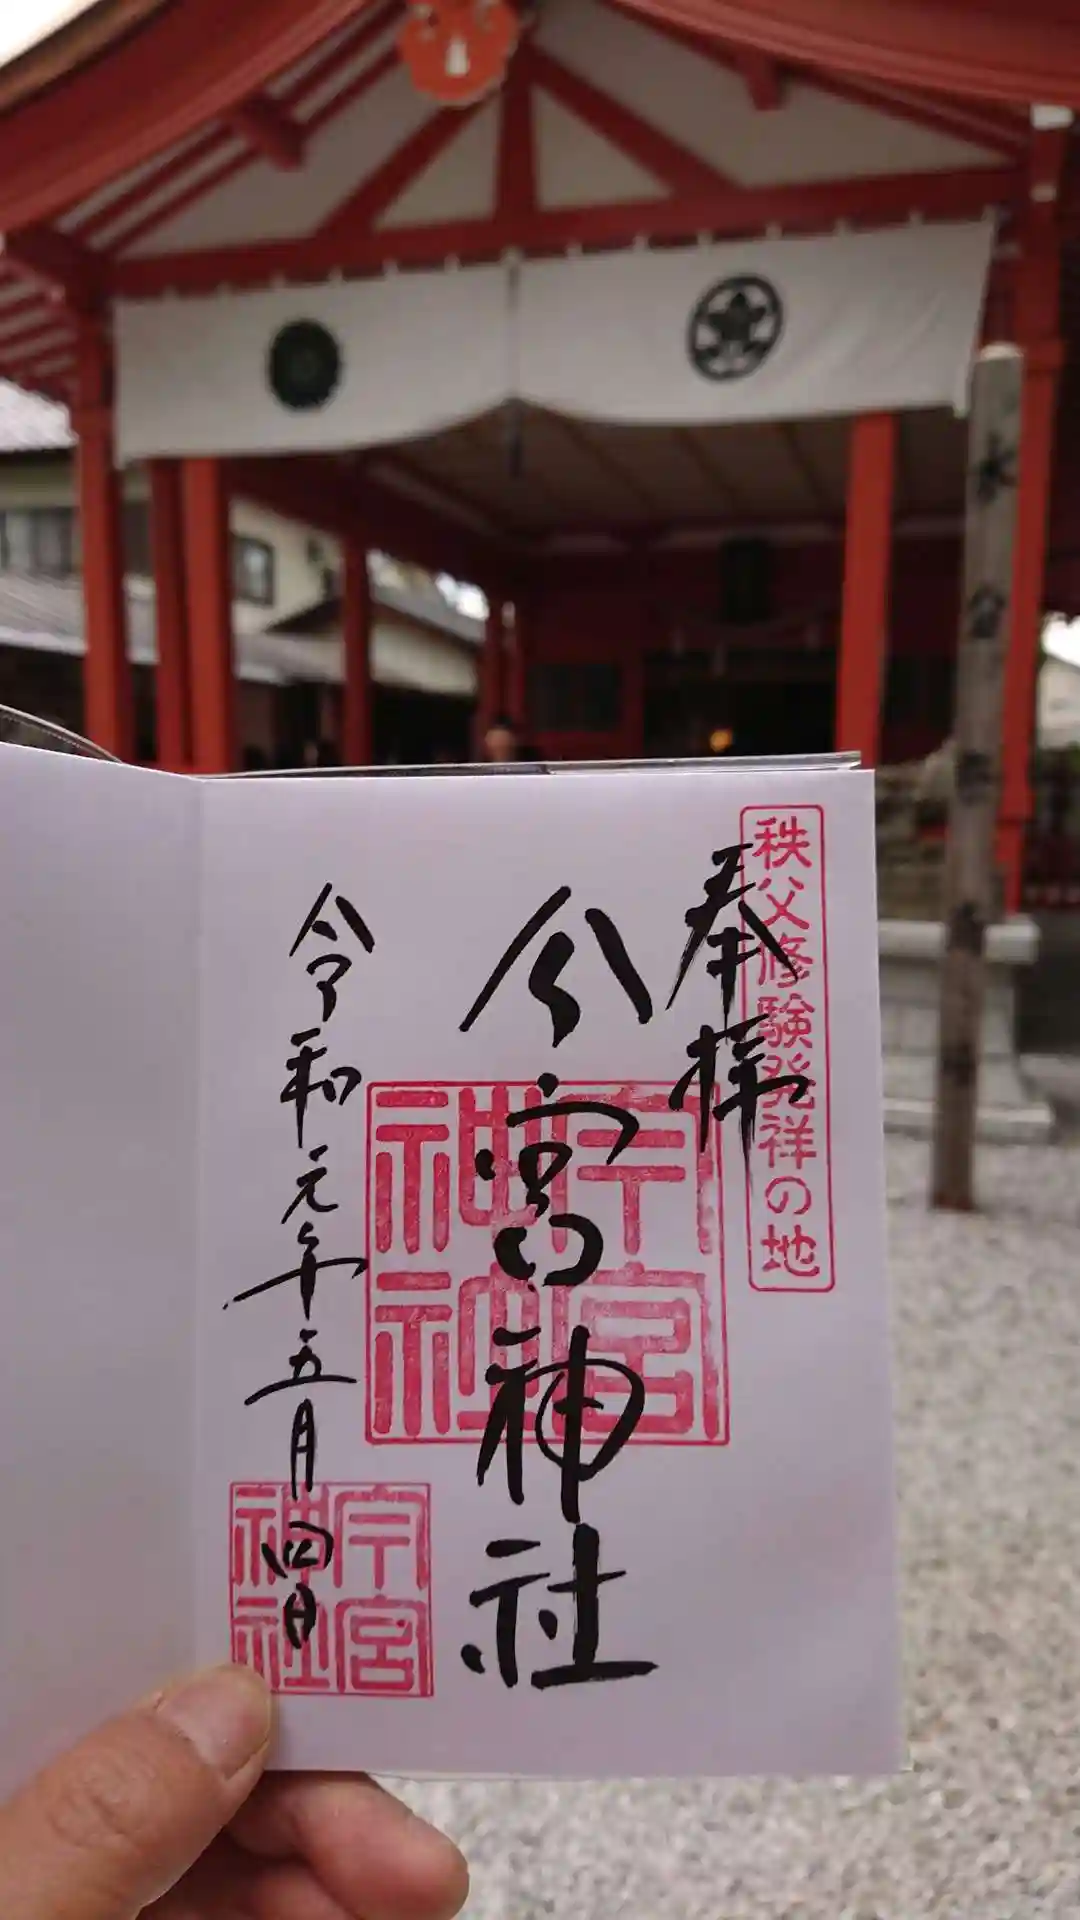 秩父修験発祥の地
奉拝
今宮神社
今宮神社
令和元年五月四日
今宮神社